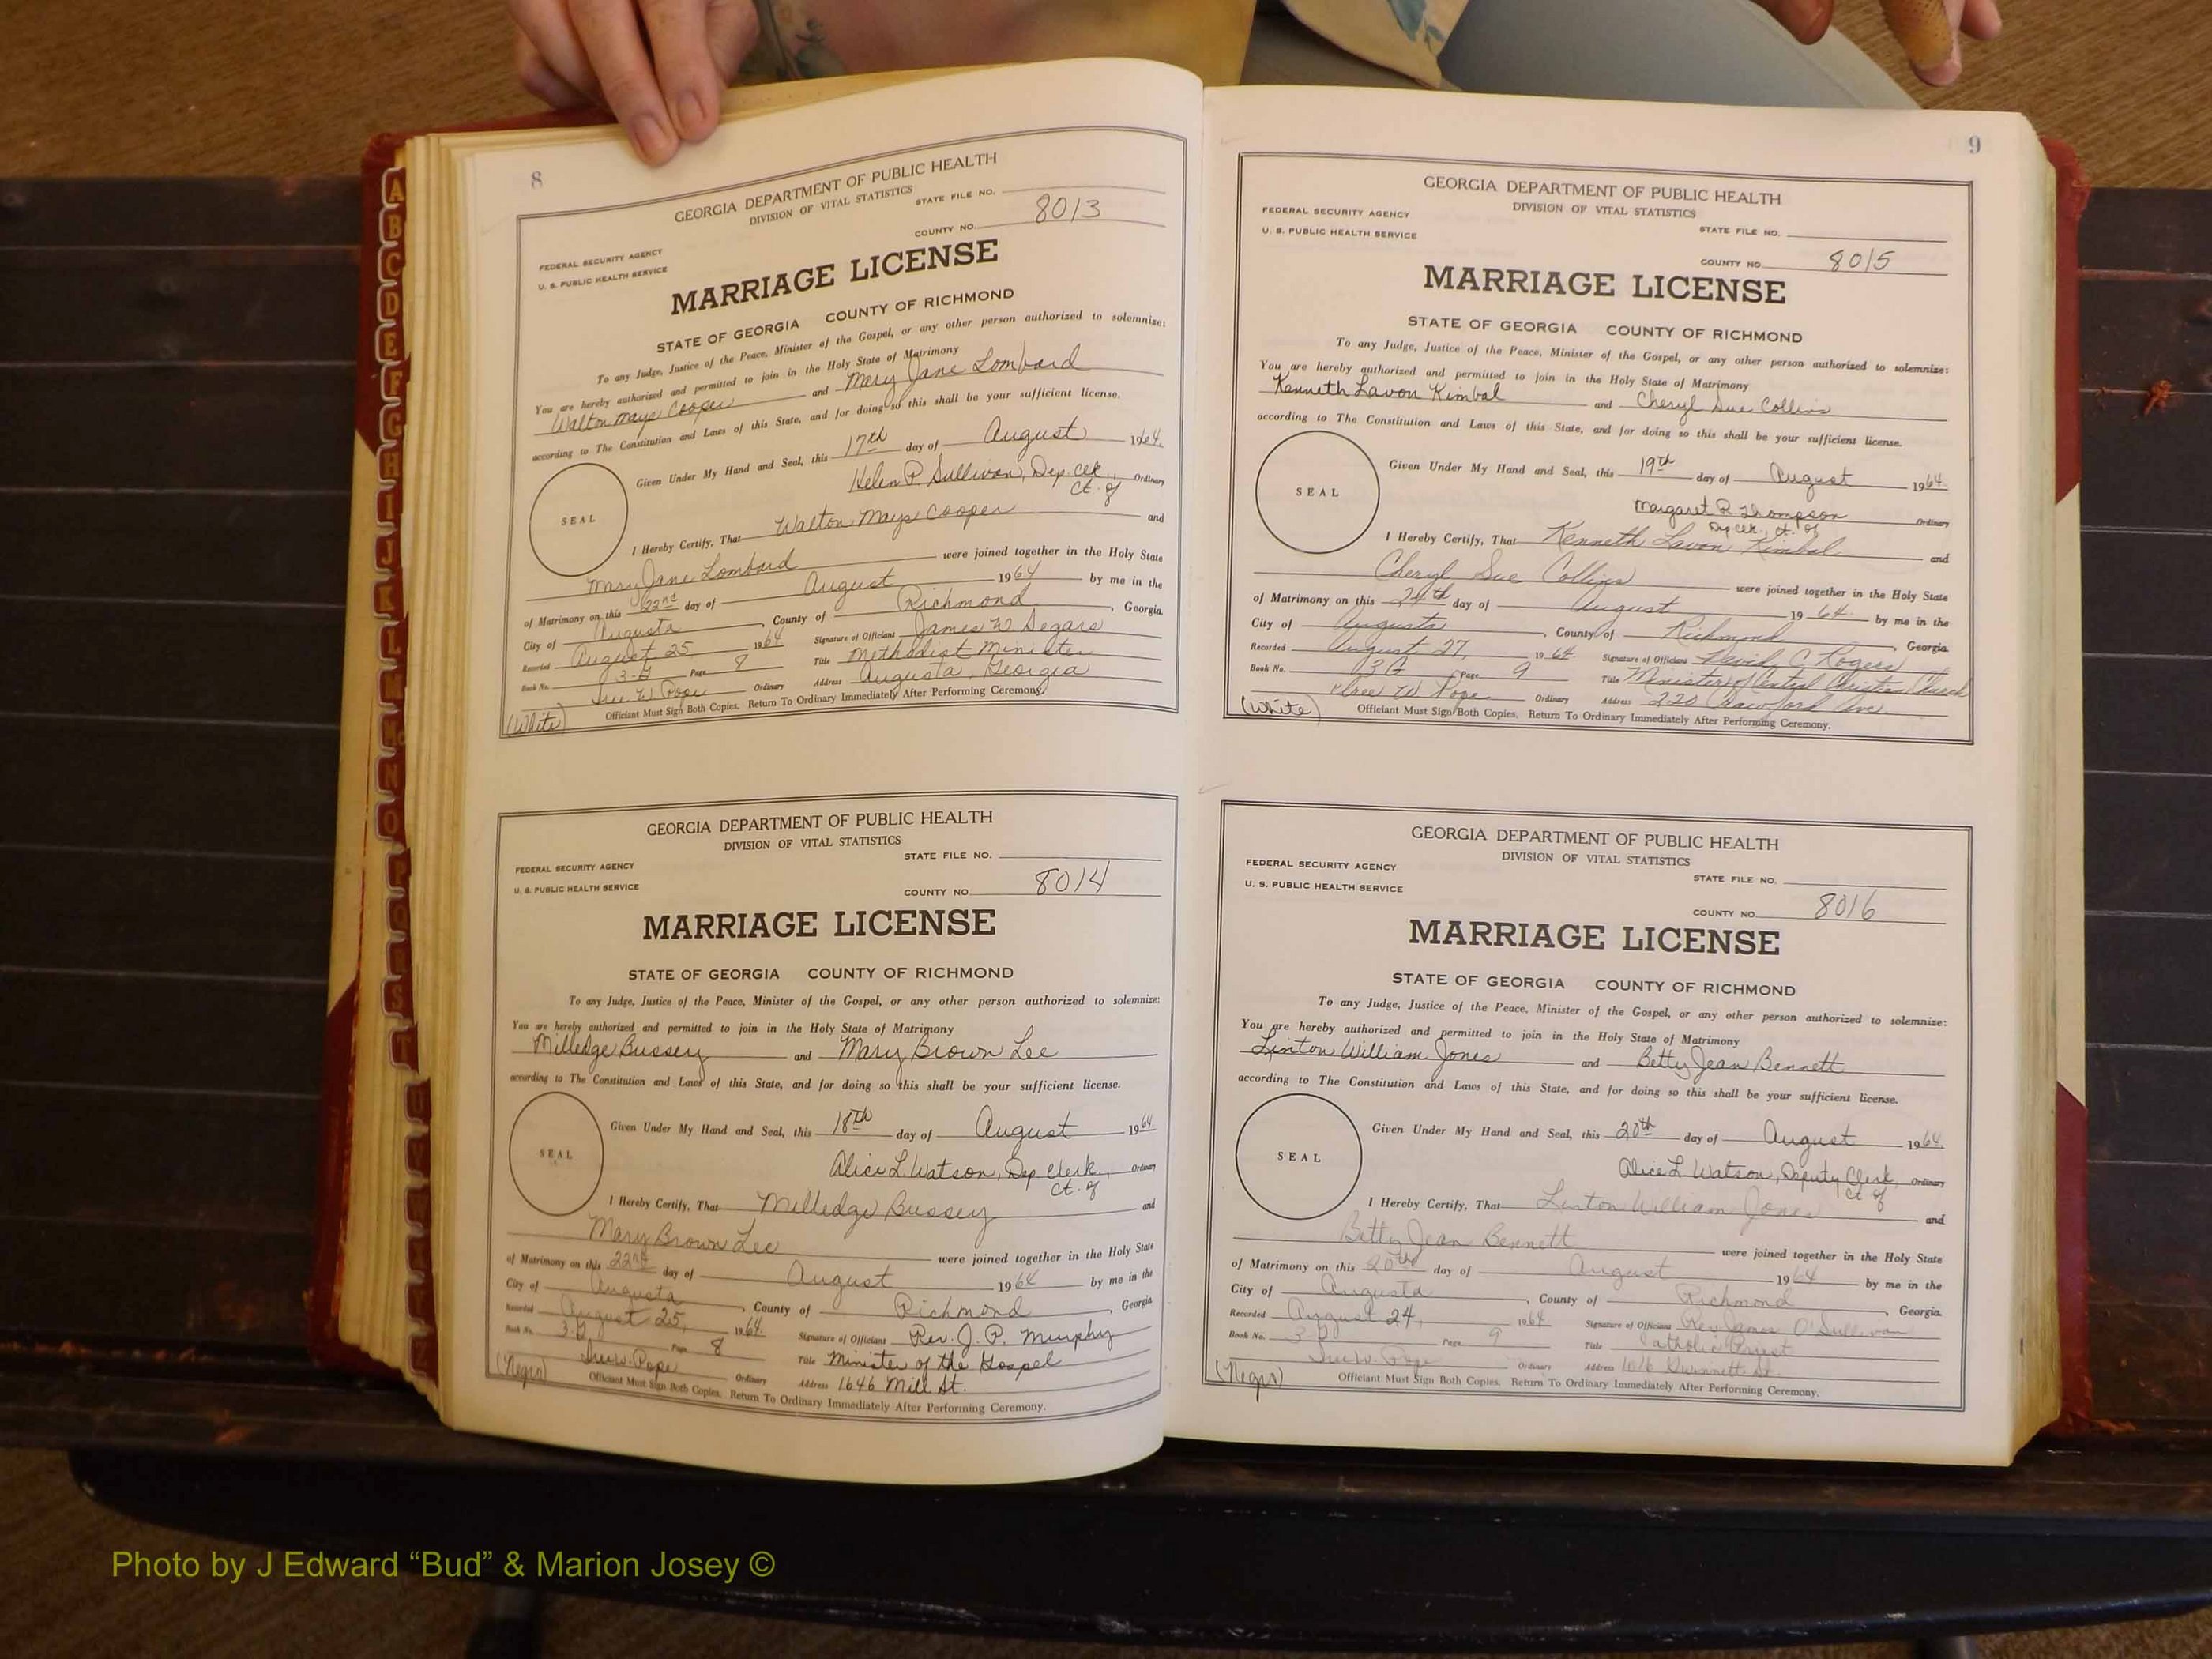 8
GEORGIA DEPARTMENT OF PUBLIC HEALTH
DIVISION OF VITAL STATISTICS
STATE FILE NO.
COUNTY NO. 8013
FEDERAL SECURITY AGENCY
U. S. PUBLIC HEALTH SERVICE
MARRIAGE LICENSE
STATE OF GEORGIA COUNTY OF RICHMOND
To any Judge, Justice of the Peace, Minister of the Gospel, or any other person authorized to solemnize:
You are hereby authorized and permitted to join in the Holy State of Matrimony
Walton Mays Cooper and Mery Jane Lombard
according to The Constitution and Laws of this State, and for doing so this shall be your sufficient license.
Given Under My Hand and Seal, this 17th day of August 1964.
Helen P. Sullivan, Dep. Clk., Ordinary
Ct. of
SEAL
I Hereby Certify, That Walton Mays Cooper and
Mary Jane Lombard were joined together in the Holy State
of Matrimony on this 22nd day of August 1964 by me in the
City of Augusta, County of Richmond, Georgia.
Recorded August 25 1964 Signature of Officiant James W. Segars
Book No. 3-G Page 8 Title Methodist Minister
Ordinary Address Augusta, Georgia
(White) Officiant Must Sign Both Copies. Return To Ordinary Immediately After Performing Ceremony.
GEORGIA DEPARTMENT OF PUBLIC HEALTH
DIVISION OF VITAL STATISTICS
STATE FILE NO.
FEDERAL SECURITY AGENCY
U. S. PUBLIC HEALTH SERVICE
COUNTY NO. 8014
MARRIAGE LICENSE
STATE OF GEORGIA COUNTY OF RICHMOND
To any Judge, Justice of the Peace, Minister of the Gospel, or any other person authorized to solemnize:
You are hereby authorized and permitted to join in the Holy State of Matrimony
Milledge Bussey and Mary Brown Lee
according to The Constitution and Laws of this State, and for doing so this shall be your sufficient license.
Given Under My Hand and Seal, this 18th day of August 1964.
Alice L. Watson, Dep Clerk, Ordinary
Ct. of
SEAL
I Hereby Certify, That Milledge Bussey and
Mary Brown Lee were joined together in the Holy State
of Matrimony on this 22nd day of August 1964 by me in the
City of Augusta, County of Richmond, Georgia
Recorded August 25, 1964. Signature of Officiant Rev. J. P. Murphy
Book No. 3-G Page 8 Title Minister of the Gospel
Ordinary Address 1646 Mill St.
(Negro) Officiant Must Sign Both Copies. Return To Ordinary Immediately After Performing Ceremony.
9
GEORGIA DEPARTMENT OF PUBLIC HEALTH
DIVISION OF VITAL STATISTICS
FEDERAL SECURITY AGENCY
U. S. PUBLIC HEALTH SERVICE
STATE FILE NO.
COUNTY NO. 8015
MARRIAGE LICENSE
STATE OF GEORGIA COUNTY OF RICHMOND
To any Judge, Justice of the Peace, Minister of the Gospel, or any other person authorized to solemnize:
You are hereby authorized and permitted to join in the Holy State of Matrimony
Kenneth Lavon Kimbal and Cheryl Sue Collins
according to The Constitution and Laws of this State, and for doing so this shall be your sufficient license.
Given Under My Hand and Seal, this 19th day of August 1964.
Margaret R. Thompson Ordinary
Dep Clk., Ct. of
SEAL
I Hereby Certify, That Kenneth Lavon Kimbal and
Cheryl Sue Collins were joined together in the Holy State
of Matrimony on this 24th day of August 1964 by me in the
City of Augusta, County of Richmond, Georgia.
Recorded August 27, 1964. Signature of Officiant David C. Rogers
Book No. 3G Page 9 Title Minister of Central Christian Church
Ordinary Address 220 Crawford Ave.
(White) Officiant Must Sign Both Copies. Return To Ordinary Immediately After Performing Ceremony.
GEORGIA DEPARTMENT OF PUBLIC HEALTH
DIVISION OF VITAL STATISTICS
FEDERAL SECURITY AGENCY
U. S. PUBLIC HEALTH SERVICE
STATE FILE NO.
COUNTY NO. 8016
MARRIAGE LICENSE
STATE OF GEORGIA COUNTY OF RICHMOND
To any Judge, Justice of the Peace, Minister of the Gospel, or any other person authorized to solemnize:
You are hereby authorized and permitted to join in the Holy State of Matrimony
Linton William Jones and Betty Jean Bennett
according to The Constitution and Laws of this State, and for doing so this shall be your sufficient license.
Given Under My Hand and Seal, this 20th day of August 1964.
Alice L. Watson, Deputy Clerk, Ordinary
Ct. of
SEAL
I Hereby Certify, That Linton William Jones and
Betty Jean Bennett were joined together in the Holy State
of Matrimony on this 20th day of August 1964 by me in the
City of Augusta, County of Richmond, Georgia.
Recorded August 24, 1964 Signature of Officiant Rev. James O'Sullivan
Book No. 3-G Page 9 Title Catholic Priest
Ordinary Address 1016 Gwinnett St.
(Negro) Officiant Must Sign Both Copies. Return To Ordinary Immediately After Performing Ceremony.
A
B
C
D
E
F
G
H
I
J
K
L
M
Mc
N
O
P
Q
R
S
T
Photo by J Edward “Bud” & Marion Josey ©